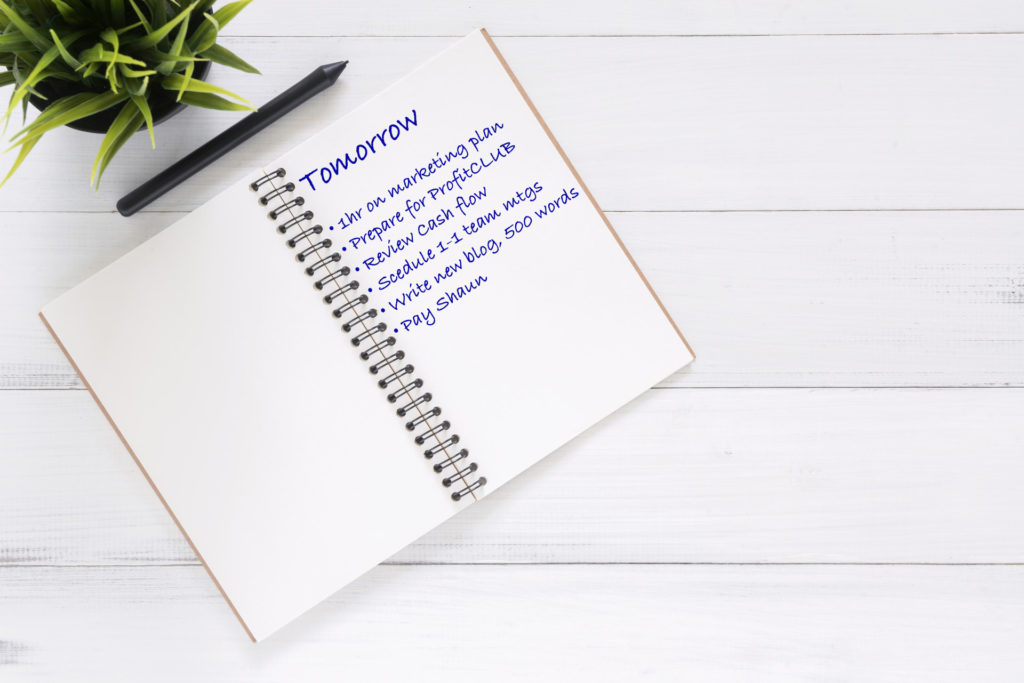 Tomorrow
• 1hr on marketing plan
• Prepare for ProfitCLUB
• Review Cash flow
• Scedule 1-1 team mtgs
• Write new blog, 500 words
• Pay Shaun